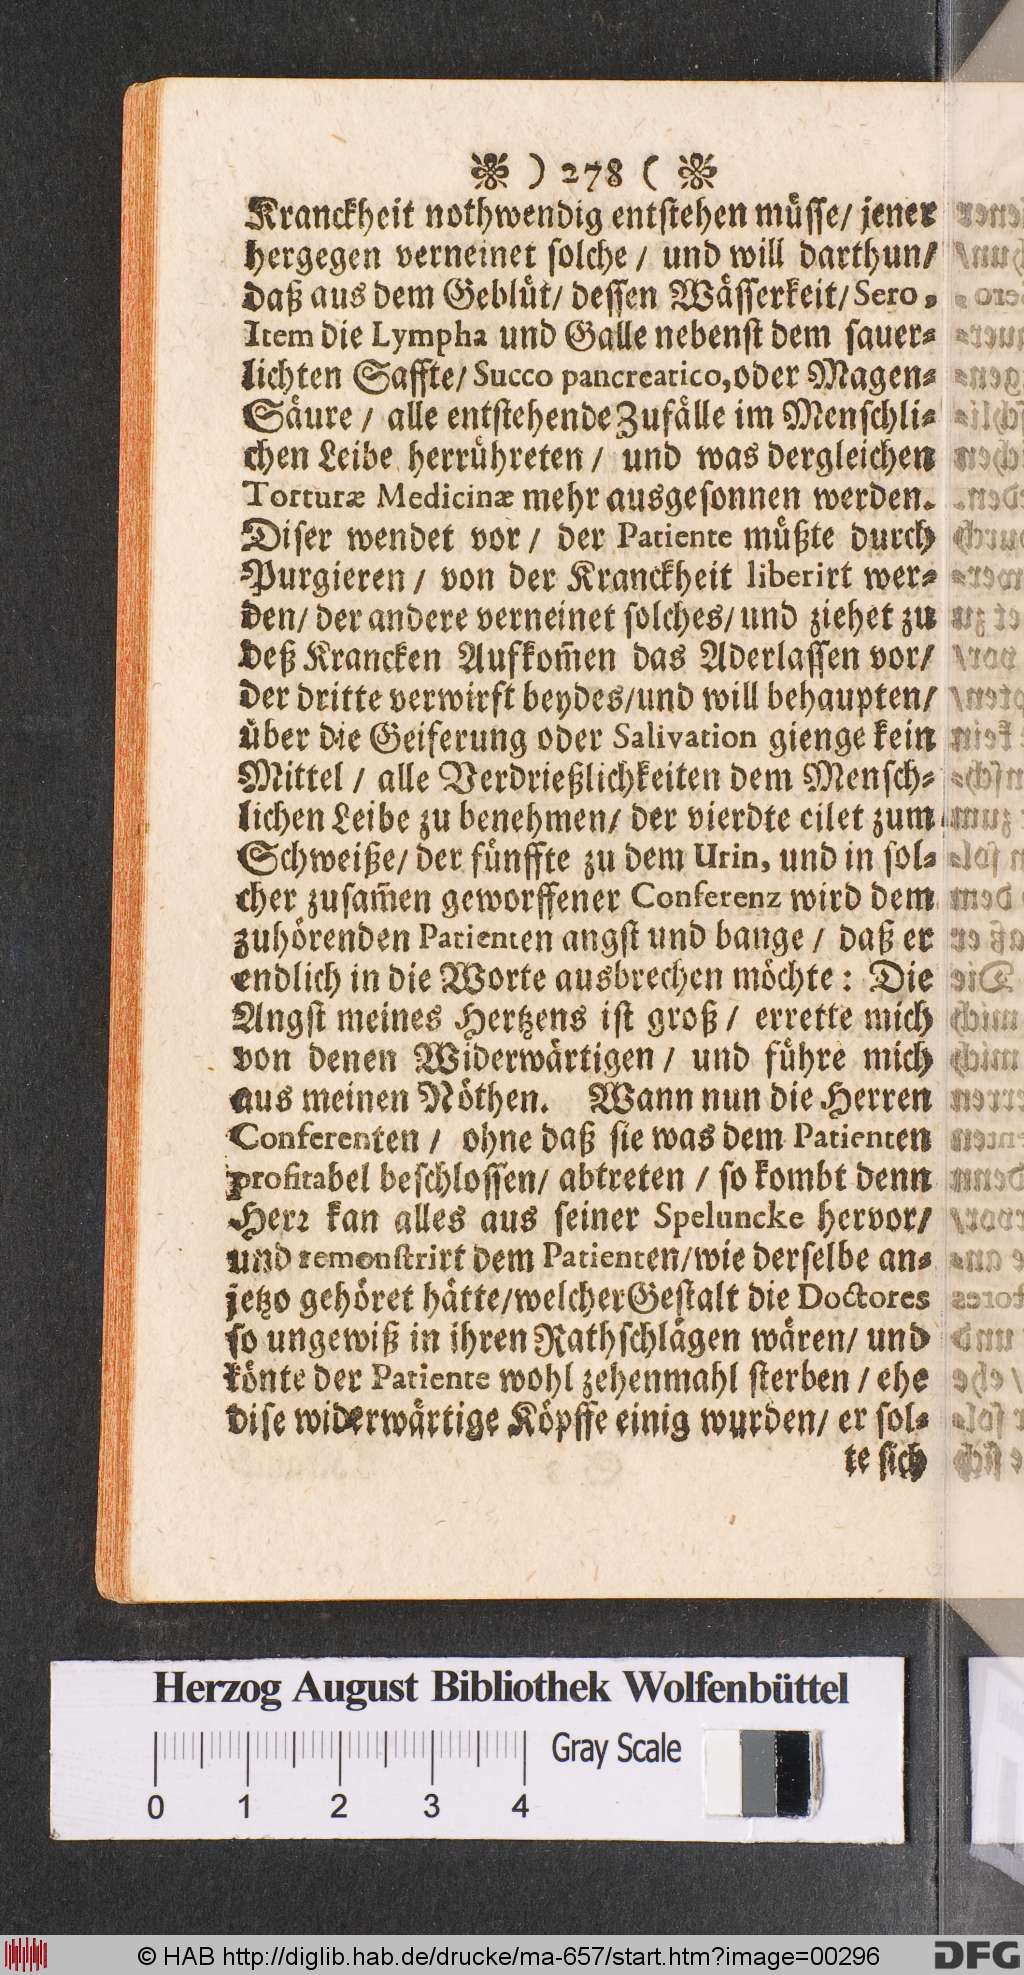 ❧ ) 278 ( ❧
Kranckheit nothwendig entstehen müsse/ jener
hergegen verneinet solche / und will darthun/
daß aus dem Geblüt/ dessen Wässerkeit/ Sero,
Item die Lympha und Galle nebenst dem sauer-
lichten Saffte/ Succo pancreatico, oder Magen-
Säure / alle entstehende Zufälle im Menschli-
chen Leibe herrühreten / und was dergleichen
Torturæ Medicinæ mehr ausgesonnen werden.
Diser wendet vor / der Patiente müßte durch
Purgieren / von der Kranckheit liberirt wer-
den/ der andere verneinet solches/ und ziehet zu
deß Krancken Aufkom̄en das Aderlassen vor/
der dritte verwirft beydes/und will behaupten/
über die Geiferung oder Salivation gienge kein
Mittel / alle Verdrießlichkeiten dem Mensch-
lichen Leibe zu benehmen/ der vierdte eilet zum
Schweiße/ der fünffte zu dem Urin, und in sol-
cher zusam̄en geworffener Conferenz wird dem
zuhörenden Patienten angst und bange / daß er
endlich in die Worte ausbrechen möchte: Die
Angst meines Hertzens ist groß / errette mich
von denen Widerwärtigen / und führe mich
aus meinen Nöthen. Wann nun die Herren
Conferenten / ohne daß sie was dem Patienten
profitabel beschlossen/ abtreten / so kombt denn
Herr kan alles aus seiner Speluncke hervor/
und remonstrirt dem Patienten/wie derselbe an-
jetzo gehöret hätte/welcher Gestalt die Doctores
so ungewiß in ihren Rathschlägen wären/ und
könte der Patiente wohl zehenmahl sterben / ehe
dise widerwärtige Köpffe einig wurden/ er sol-
te sich
Herzog August Bibliothek Wolfenbüttel
0 1 2 3 4 Gray Scale
© HAB http://diglib.hab.de/drucke/ma-657/start.htm?image=00296
DFG